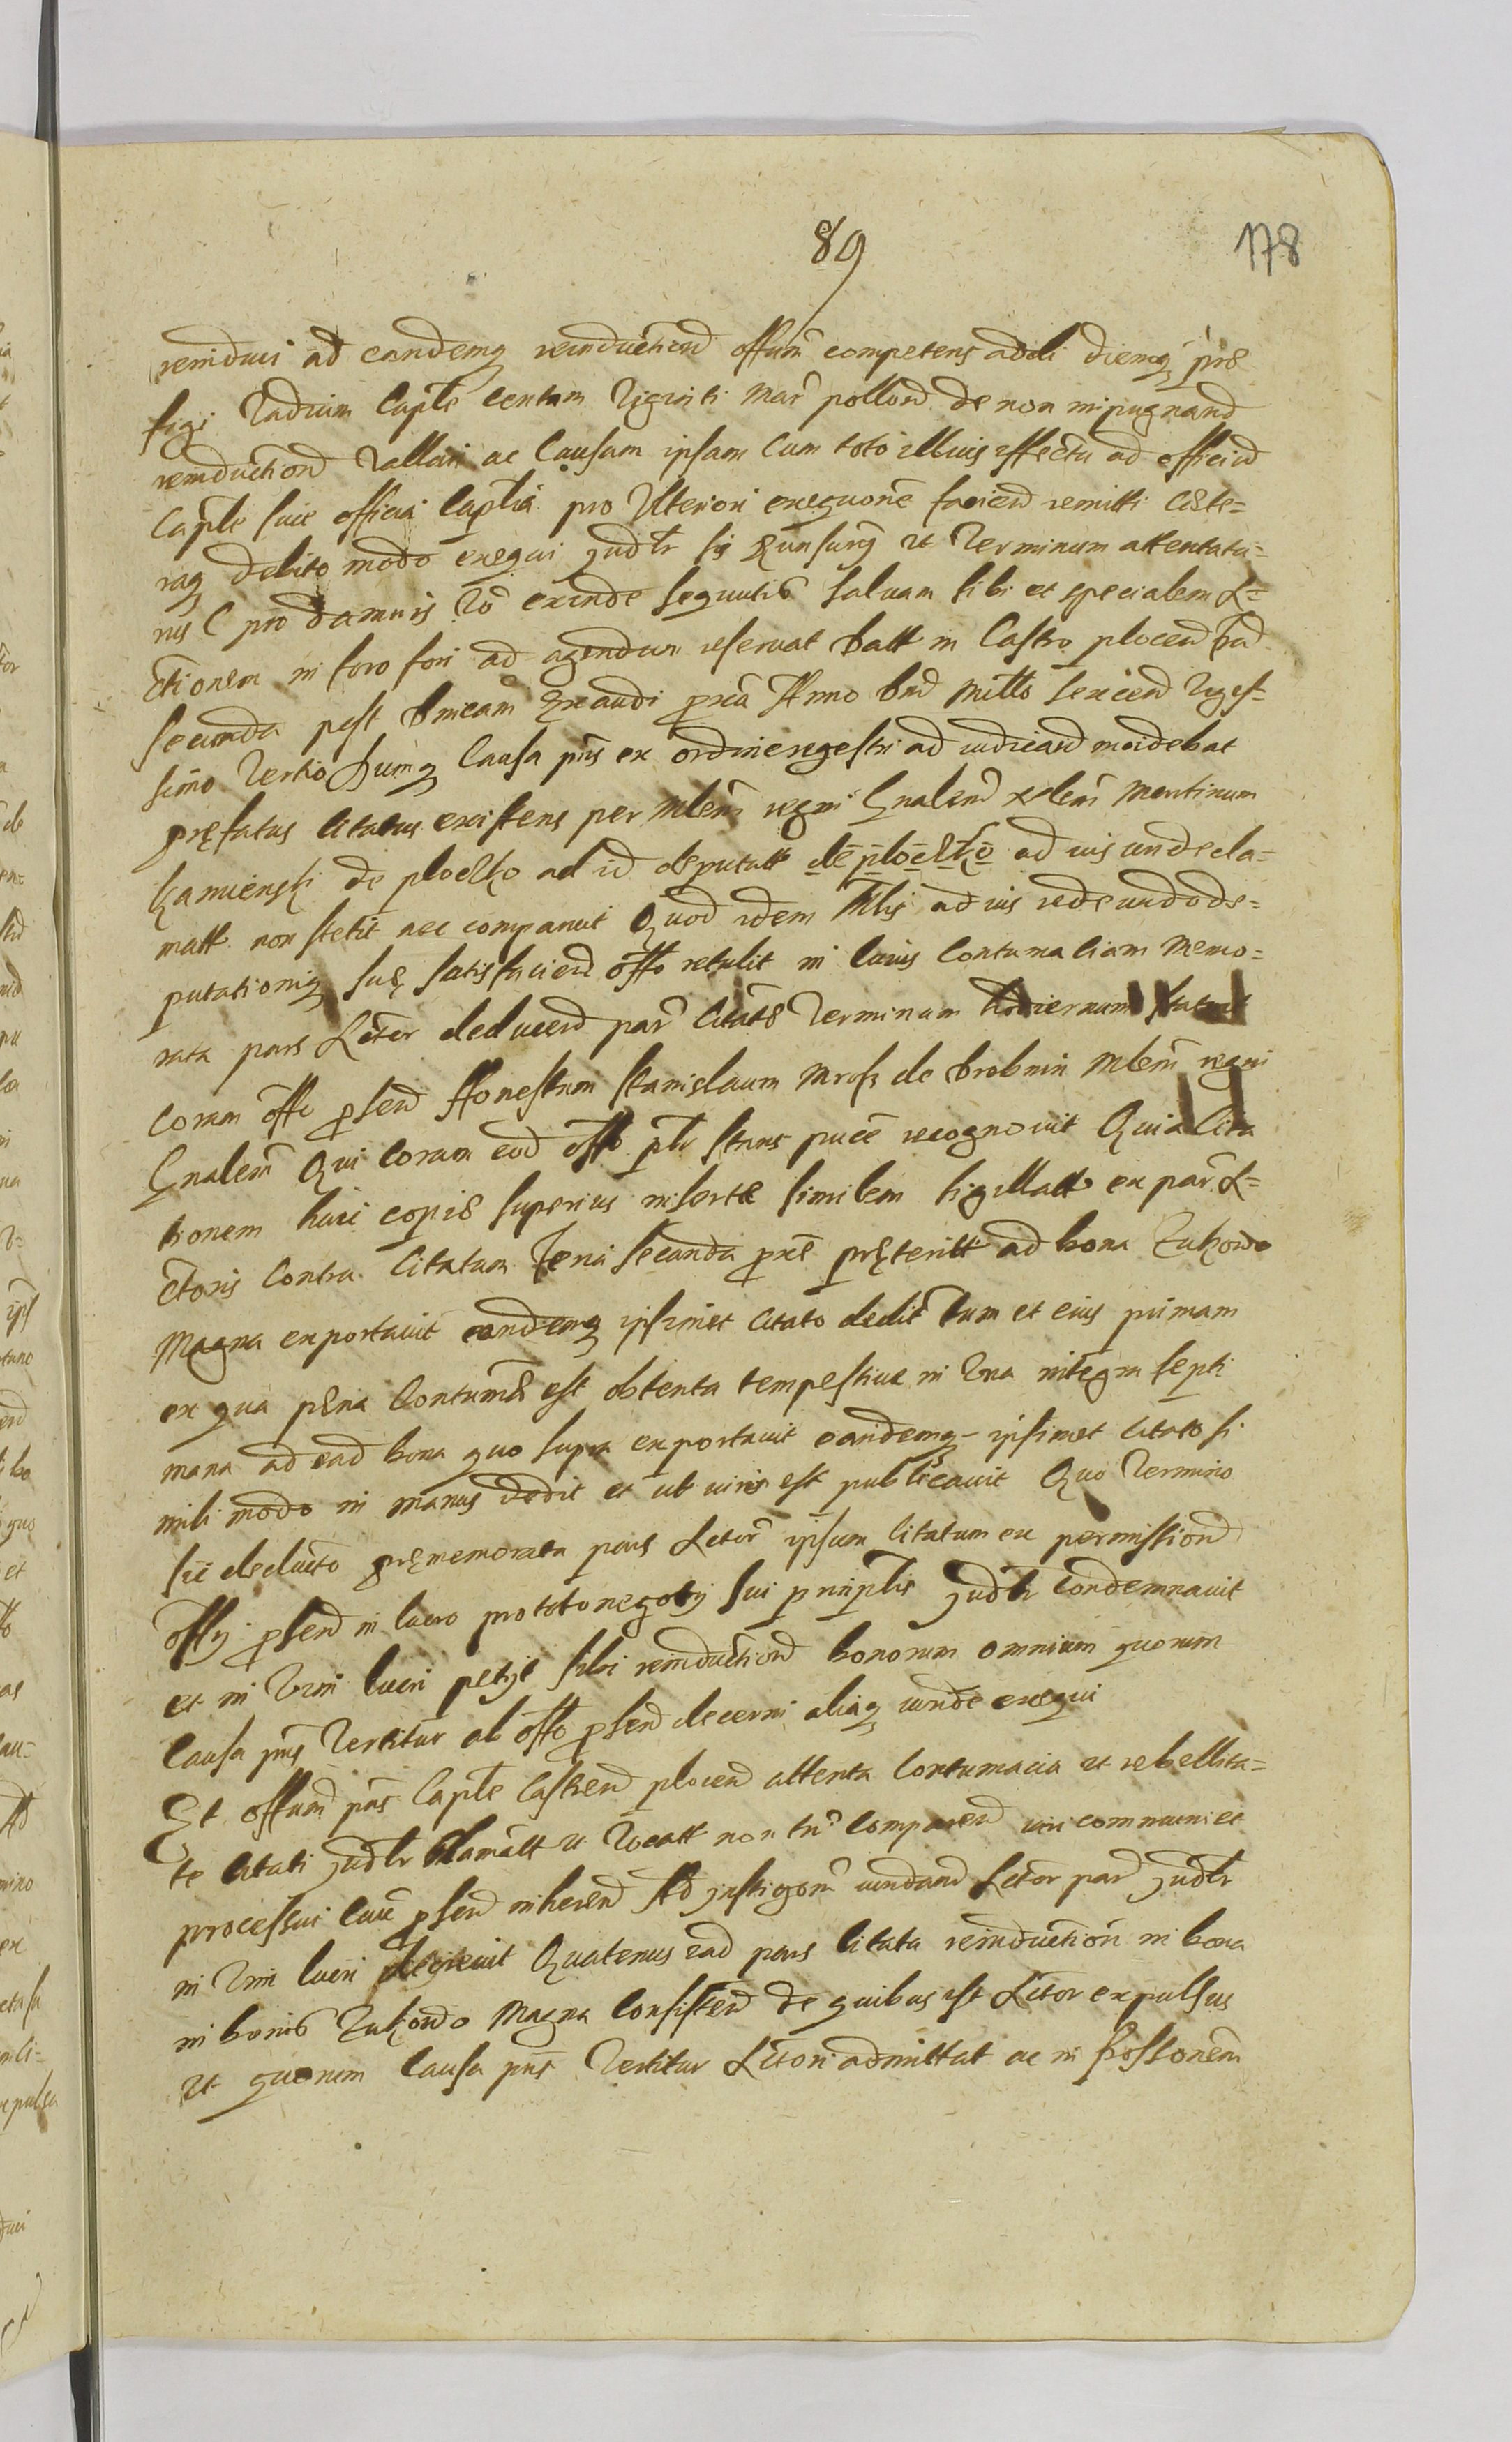 89
178
reinduci ad eandemq reinductiond offium competens addi diemq præ
figi Vadium Caple centum Viginti mar pollond de non impugnand
reinductiond Vallari ac Causam ipsam Cum toto illius effectu ad officiu
Caple suie officia Captia pro Ulteriori exequone faciend remitti Cæte=
raq debito modo exequi judlr sis et Terminum attentatu=
rus C pro damnis Vo exinde sequutis Saluam sibi et specialem A=
ctionem in foro fori ad agendum reseruat Datt in Castro plocen fria
secunda post Dnicam Exaudi pxia Anno Dnd Millo Sexcend Viges=
simo Tertio Dumq Causa pns ex ordine regestri ad iudicand incidebat
præfatus citatus existens per Mlem regni Gnalem Martinum
Kamienski de plocko ad id deputatt de plocko ad ius undecla=
matt non stetit nec comparuit Quod idem Mlis ad ius reddendo de=
putationiq suæ satisfaciend offo retulit in Cuius Contumaciam Memo=
rata pars Actor deducend par Citatæ Terminum hodiernum statuit
Coram offo psend Honestum Stanislaum Mross de Drobnin Mlem regni
Gnalem Qui Coram eod offo plr stans puce recognouit Quia Cita
tionem huic copiæ superius insertæ similem sigillatt ex par A=
ctoris Contra Citatum feria secunda pxe præteritt ad bona Zukowo
Magna exportauit eandemq ipsimet Citato dedit tum et eius primam
ex qua pæna Contumæ est obtenta tempestiue in Una integra septi
mana ad ead bona quo supra exportauit eandemq ipsimet Citato si
mili modo in manus dedit et ut iuris est publicauit Quo Termino
sic deducto præmemorata pars Actor ipsum Citatum ex permissiond
offij psend in lucro pro toto negotij sui prinplis judlr condemnauit
et in Vim lucri petijt sibi reinductiond bonorum omnium quorum
Causa pns Vertitur ab offo psend decerni aliaq iuride exequi
Et offium pns Caple Castrend plocend attenta Contumacia et rebellita=
te Citati judlr Clamatt et Vocatt non tn comparend iuri communi et
processui Caue psend inherend Ad instigom iuridand Actor par judlr
in Vim lucri decreuit Quatenus ead pars Citata reinduction in bona
in bonis Zukowo Magna Consistend de quibus est Actor expulsus
et quorum Causa pns Vertitur Actori admittat ac in possonem